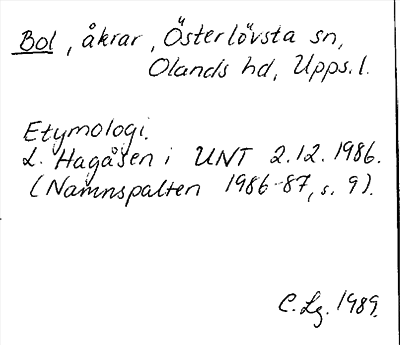 Bol, åkrar, Österlövsta sn,
Olands hd, Upps. l.
Etymologi.
L. Hagåsen i UNT 2.12.1986.
(Namnspalten 1986-87, s. 9).
C. Lg. 1989.